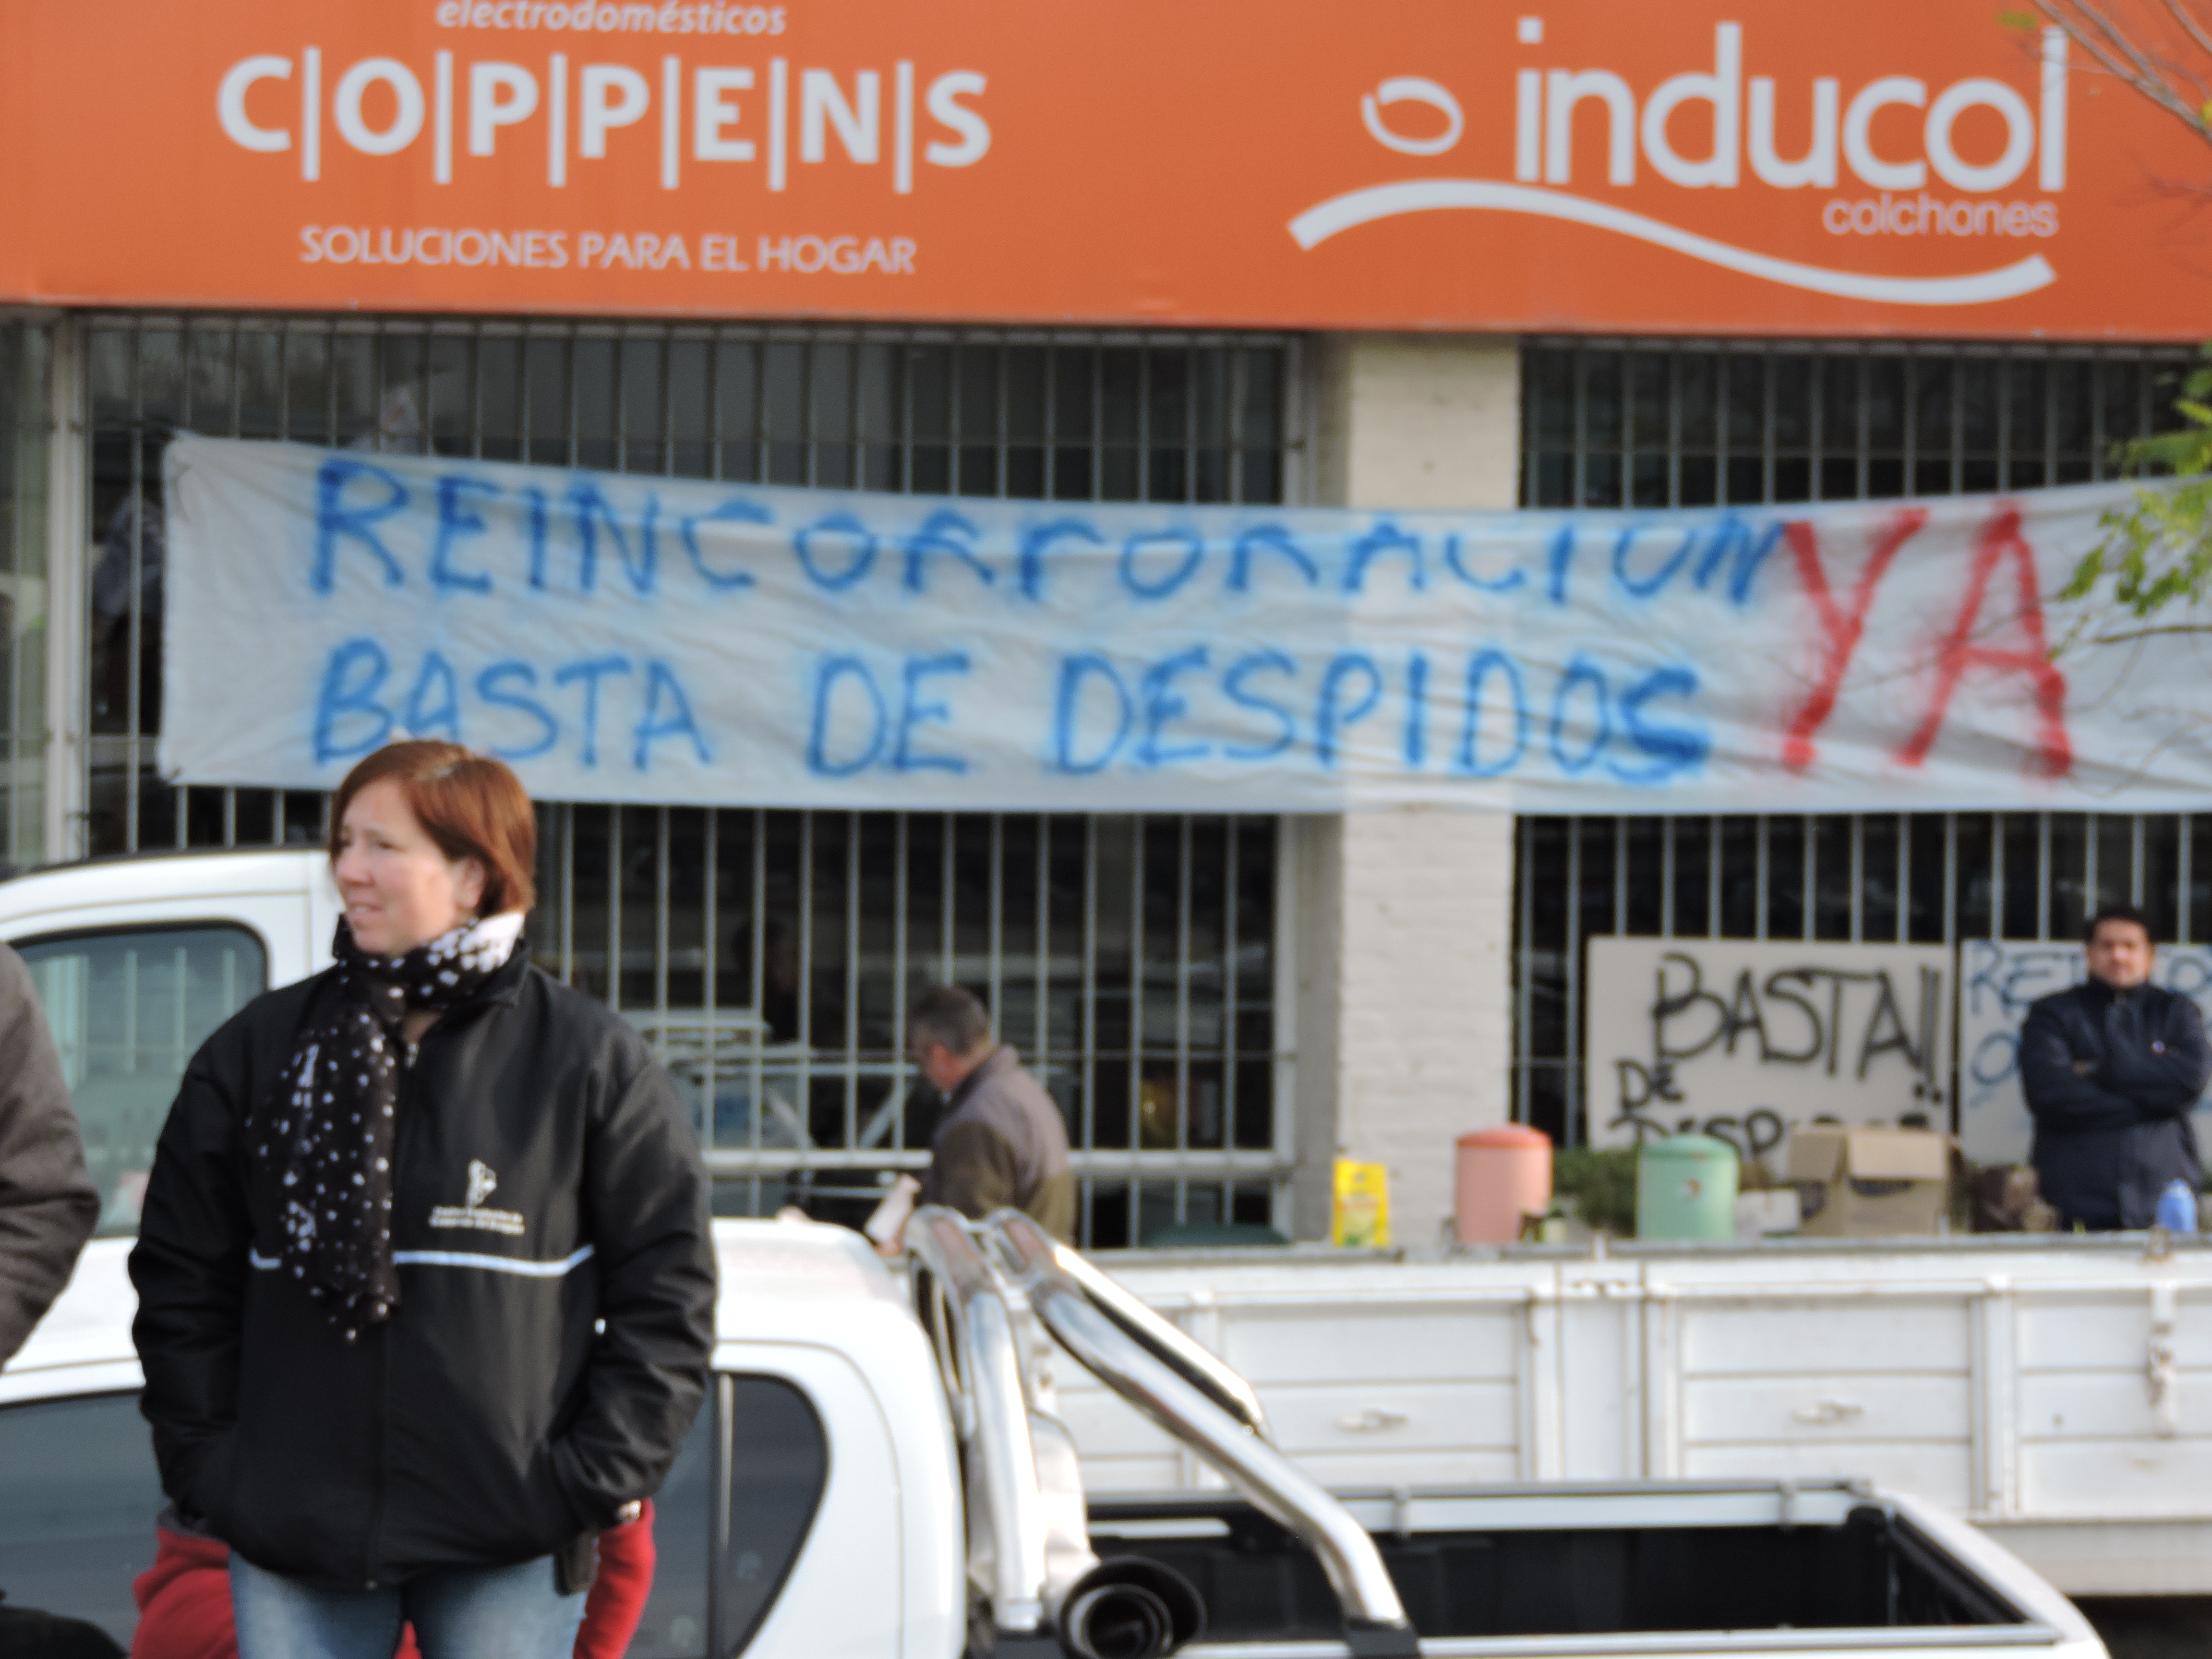 electrodomésticos
C|O|P|P|E|N|S
SOLUCIONES PARA EL HOGAR
inducol
colchones
REINCORPORACION YA
BASTA DE DESPIDOS
BASTA!!
DE